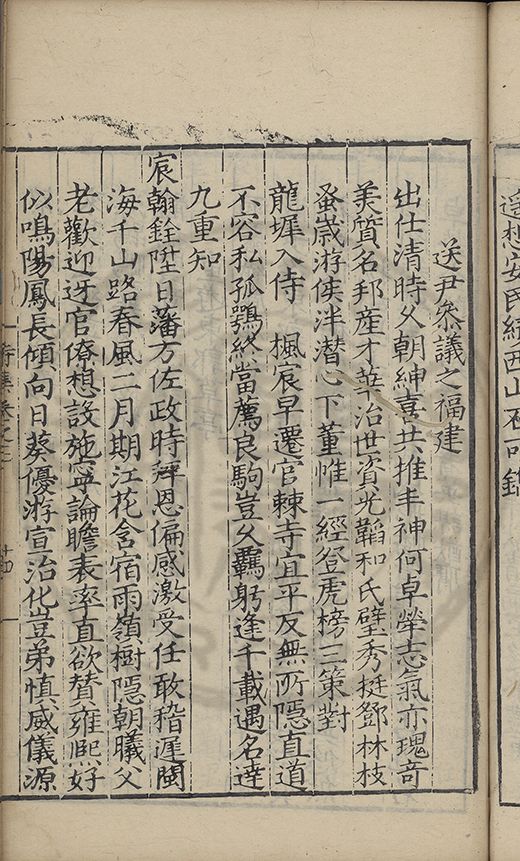 遥想安民經西山不可
送尹叅議之福建
出仕清時久朝紳喜共推丰神何卓犖志氣亦瑰奇
美質名邦産才華治世資光韜和氏璧秀挺鄧林枝
蚤歲游俟泮潜心下董惟一經登虎榜三策對
龍墀入侍楓宸早遷官棘寺宜平反無所隠直道
不容私孤鶚終當薦良駒豈久羈躬逢千載遇名達
九重知
宸翰銓陞日藩方佐政時拜恩偏感激受任敢稽遲閩
海千山路春風二月期江花含宿雨嶺樹隠朝曦父
老歡迎迓官僚想設施寧論瞻表率直欲賛雍熙好
似鳴陽鳳長傾向日葵優游宣治化豈弟慎威儀源
十四